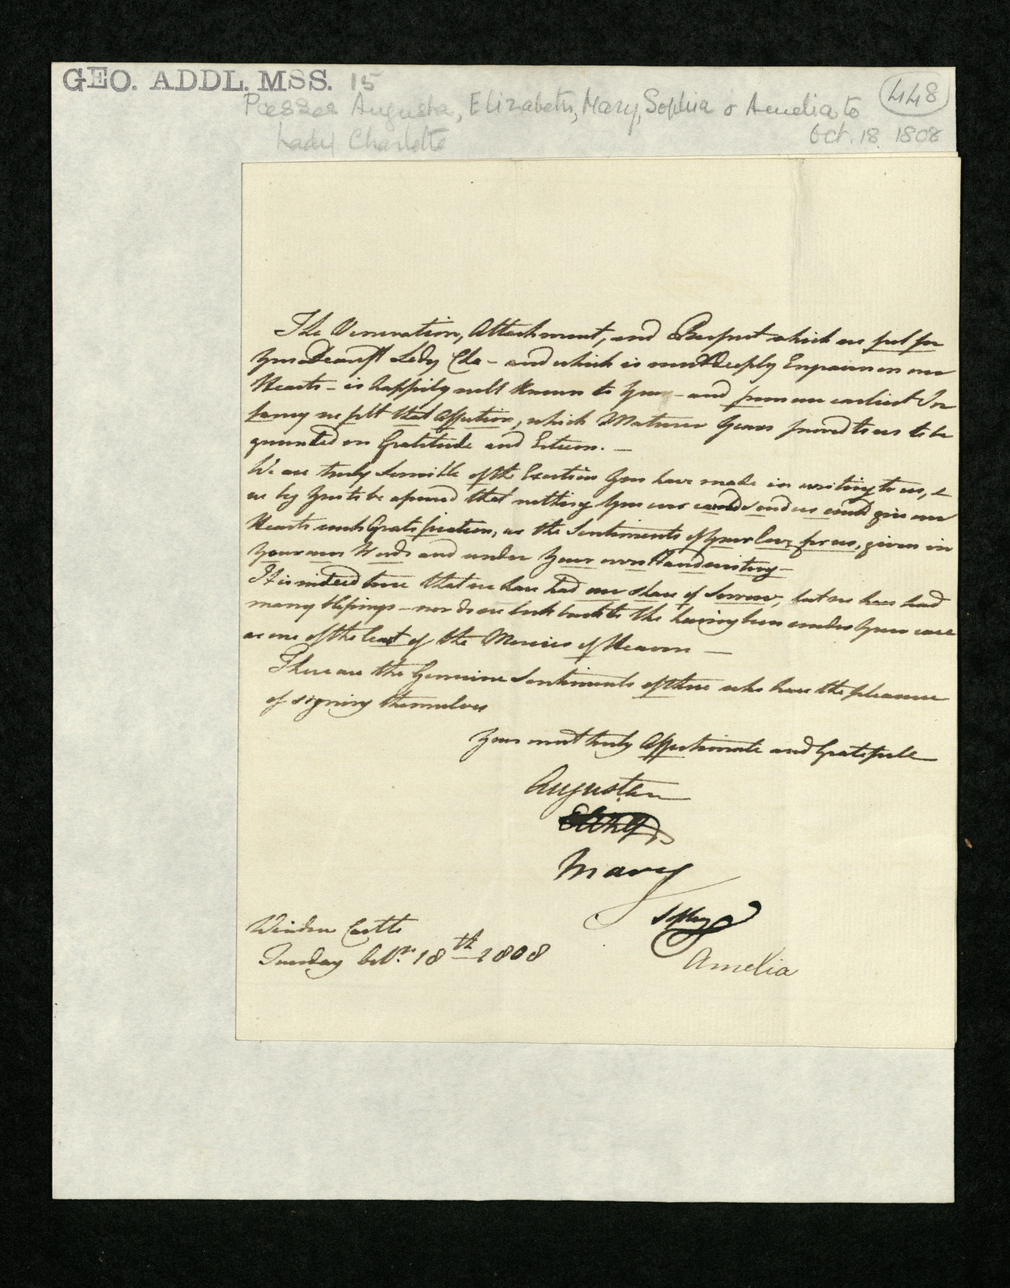 GEO. ADDL. MSS. 15
448
Pcesses Augusta, Elizabeth, Mary, Sophia & Amelia to
Lady Charlotte
Oct. 18. 1808
The Veneration, Attachment, and Respect which we feel for
You Dearest Lady Cha - and which is most Deeply Engraven on our
Hearts - is happily well known to You - and from our earliest In
fancy we felt that affection, which Maturer Years proved to us to be
grounded on Gratitude and Esteem. -
We are truly sensible of the Exertion You have made in writing to us, &
we beg You to be assured that nothing You ever could send us could give our
Hearts such Gratification, as the Sentiments of your love for us, given in
Your own Words and under Your own Handwriting -
It is indeed true that we have had our share of Sorrow, but we have had
many blessings - nor do we look back to the having been under Your care
as one of the least of the Mercies of Heaven -
These are the Genuine Sentiments of those who have the pleasure
of signing themselves
Your most truly Affectionate and Gratefull
Augusta
Eliza
Mary
Sophia
Amelia
Windsor Castle
Tuesday Octr. 18th 1808